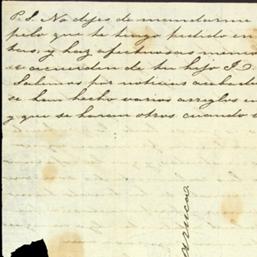 P.S. No dejes de mandarme
pelo que te tengo pedido en
tas, y haz afectuosas memo
se acuerden de tu hijo J.
Sabemos por noticias
se han hecho varios arreglos en
y que se haran otros cuando